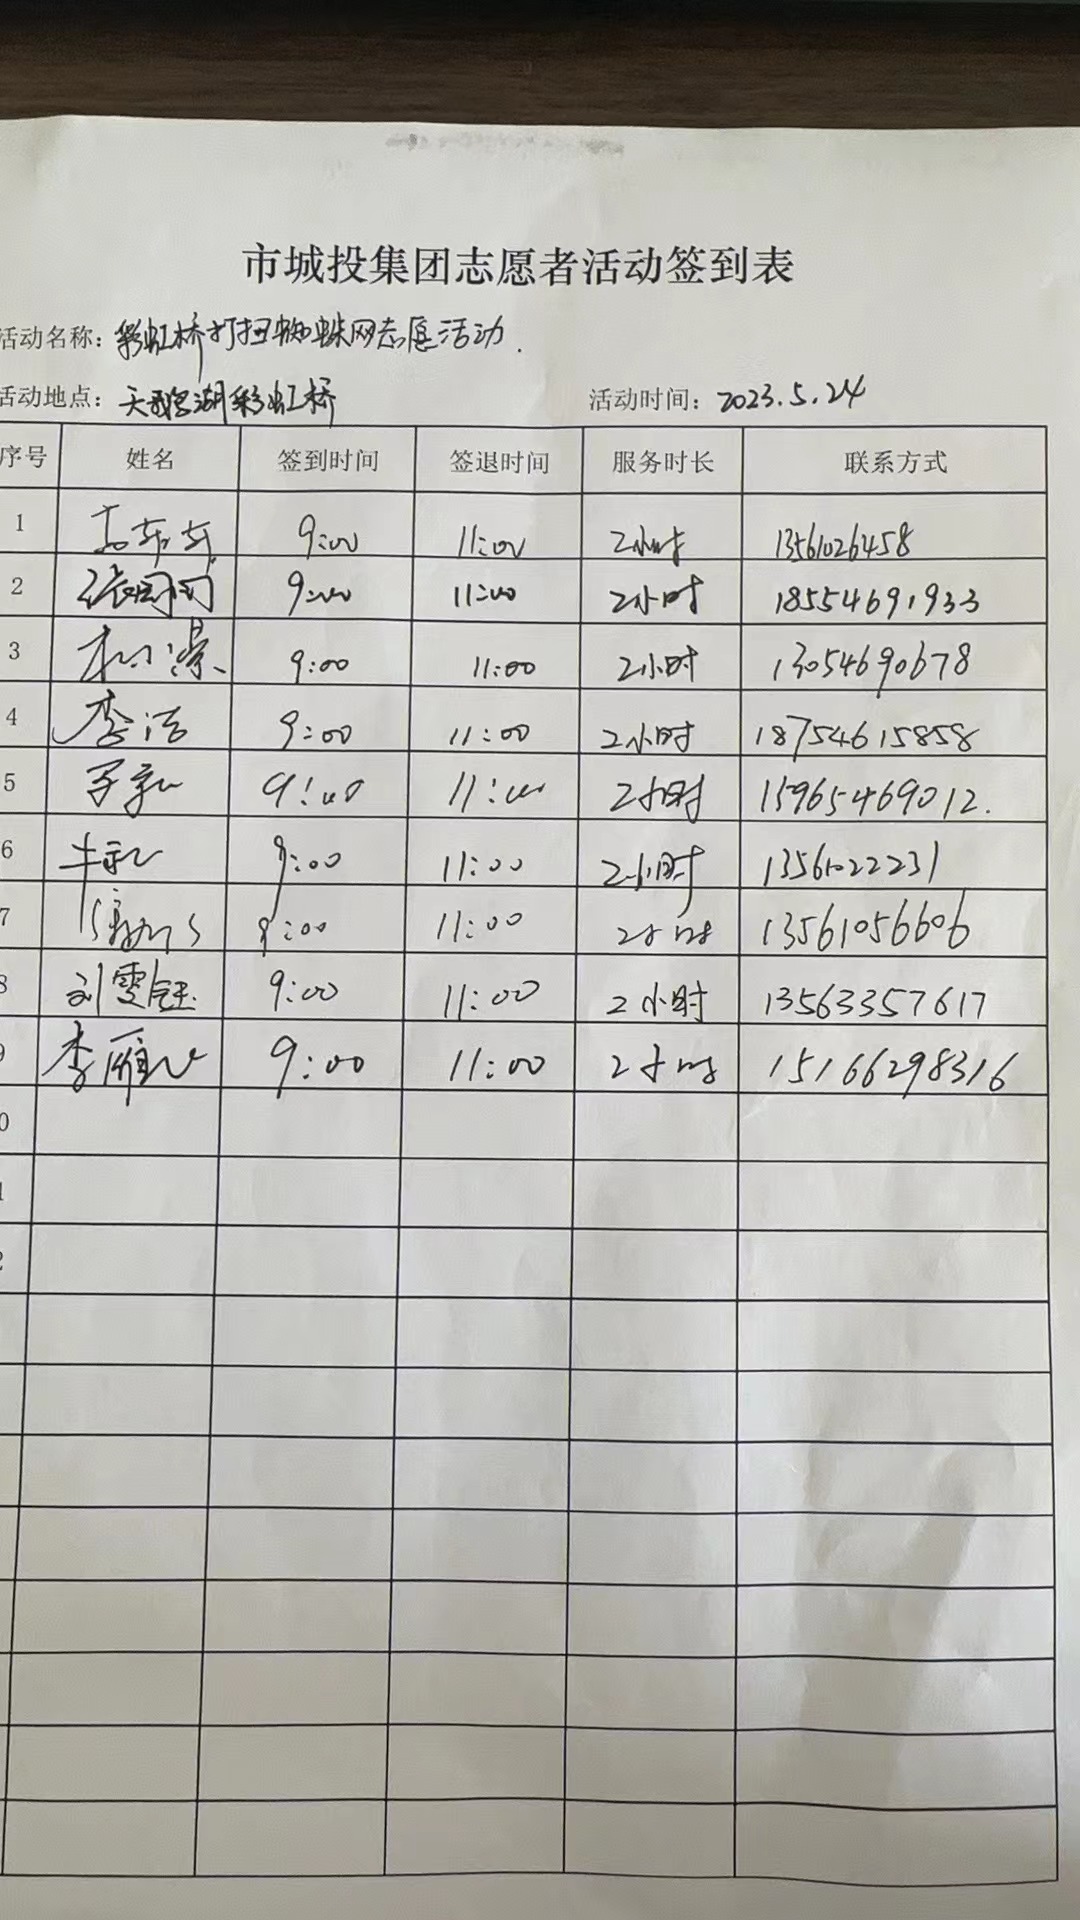 市城投集团志愿者活动签到表
活动名称：彩虹桥打扫蜘蛛网志愿活动.
活动地点：天鹅湖彩虹桥 活动时间：2023.5.24
序号 姓名 签到时间 签退时间 服务时长 联系方式
1 9:00 11:00 2小时 13561026458
2 张园园 9:00 11:00 2小时 18554691933
3 9:00 11:00 2小时 13054690678
4 李洁 9:00 11:00 2小时 18754615858
5 9:00 11:00 2小时 15965469012.
6 9:00 11:00 2小时
7 9:00 11:00 2小时 13561056606
8 刘雯钰 9:00 11:00 2小时 13563357617
9 李雁 9:00 11:00 2小时 15166298316
0
1
2